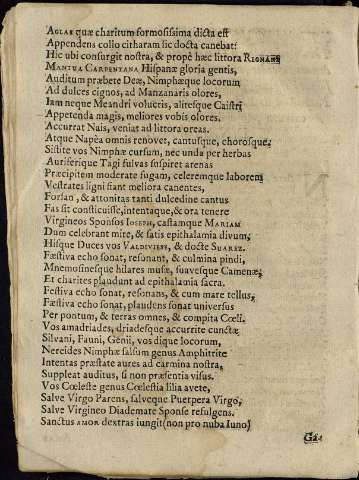 AGLAE quæ charitum formosissima dicta est
Appendens collo citharam sic docta canebat:
Hic ubi consurgit nostra, & propè hæc littora REGNANS
MANTUA CARPENTANA Hispanæ gloria gentis,
Auditum præbete Deæ, Nimphæque locorum
Ad dulces cignos, ad Manzanaris olores,
Iam neque Meandri volucris, alitesque Caistri
Appetenda magis, meliores vobis olores.
Accurrat Nais, veniat ad littora oreas.
Atque Napèa omnis renovet, cantusque, chorosque;
Sistite vos Nimphæ cursum, nec unda per herbas
Auriferique Tagi fulvas suspiret arenas
Præcipitem moderate fugam, celeremque laborem
Vestrates ligni siant meliora canentes,
Forsan, & attonitas tanti dulcedine cantus
Fas sit consticuisse, intentaque, & ora tenere
Virgineos Sponsos IOSEPH, castamque MARIAM
Dum celebrant mire, & satis epithalamia divum;
Hisque Duces vos VALDIVIESE, & docte SUAREZ.
Fæstiva echo sonat, resonant, & culmina pindi,
Mnemosinesque hilares musæ, suavesque Camenæ;
Et charites plaudunt ad epithalamia sacra.
Festiva echo sonat, resonans, & cum mare tellus,
Fæstiva echo sonat, plaudens sonat universus
Per pontum, & terras omnes, & compita Cœli.
Vos amadriades, driadesque accurrite cunctæ
Silvani, Fauni, Genii, vos dique locorum,
Nereides Nimphæ salsum genus Amphitrite
Intentas præstate aures ad carmina nostra,
Suppleat auditus, si non præsentia visus.
Vos Cœleste genus Cœlestia lilia avete,
Salve Virgo Parens, salveque Puerpera Virgo,
Salve Virgineo Diademate Sponse refulgens.
Sanctus AMOR dextras iungit (non pro nuba Iuno)